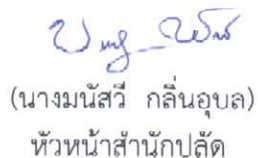 (นางมนัสวี กลิ่นอุบล)
หัวหน้าสำนักปลัด